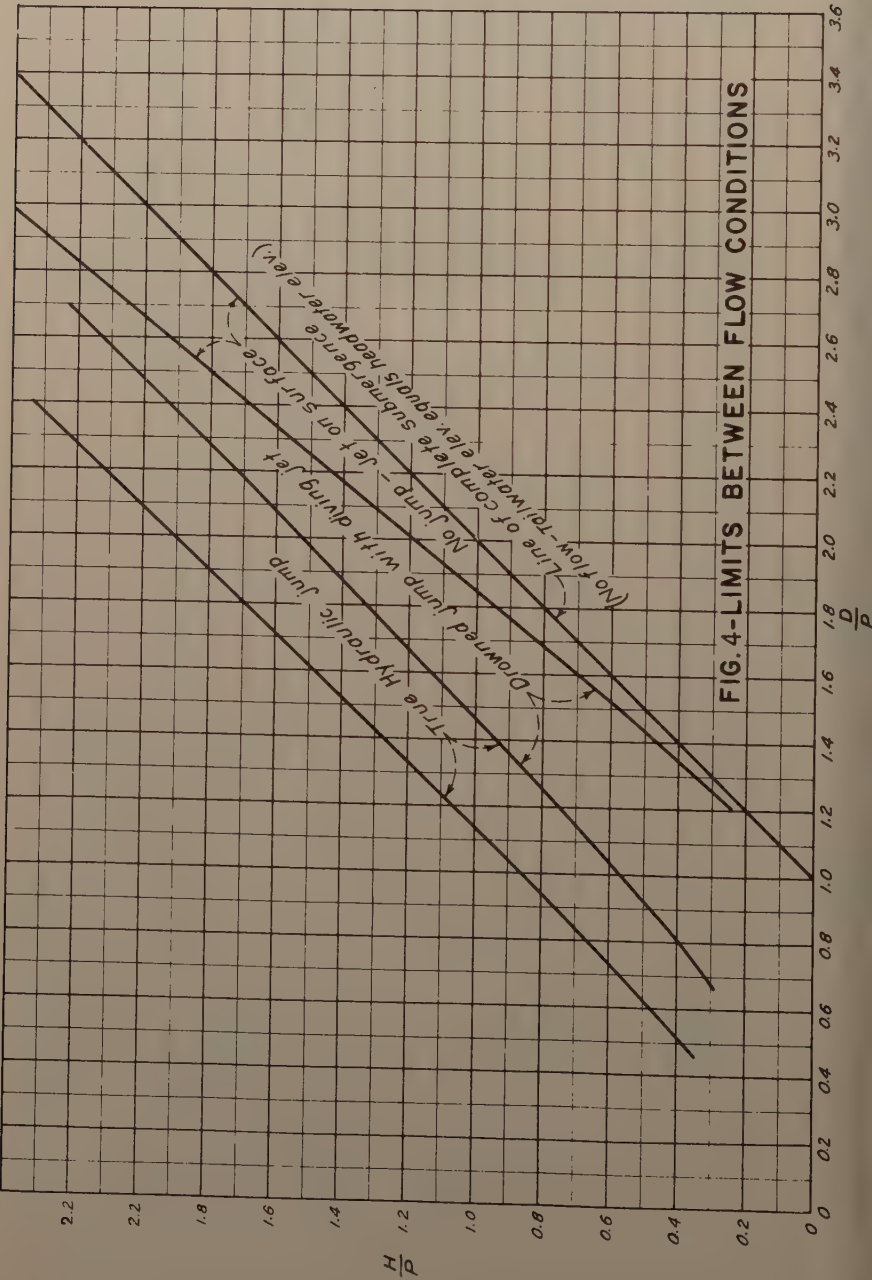 2.2
2.2
1.8
1.6
1.4
1.2
1.0
0.8
0.6
0.4
0.2
0
H
P
True Hydraulic jump
Drowned jump with diving jet
No jump - Jet on surface
Line of complete submergence
(No flow-Tailwater elev. equals headwater elev.)
FIG. 4-LIMITS BETWEEN FLOW CONDITIONS
0 0.2 0.4 0.6 0.8 1.0 1.2 1.4 1.6 1.8 2.0 2.2 2.4 2.6 2.8 3.0 3.2 3.4 3.6
D
P